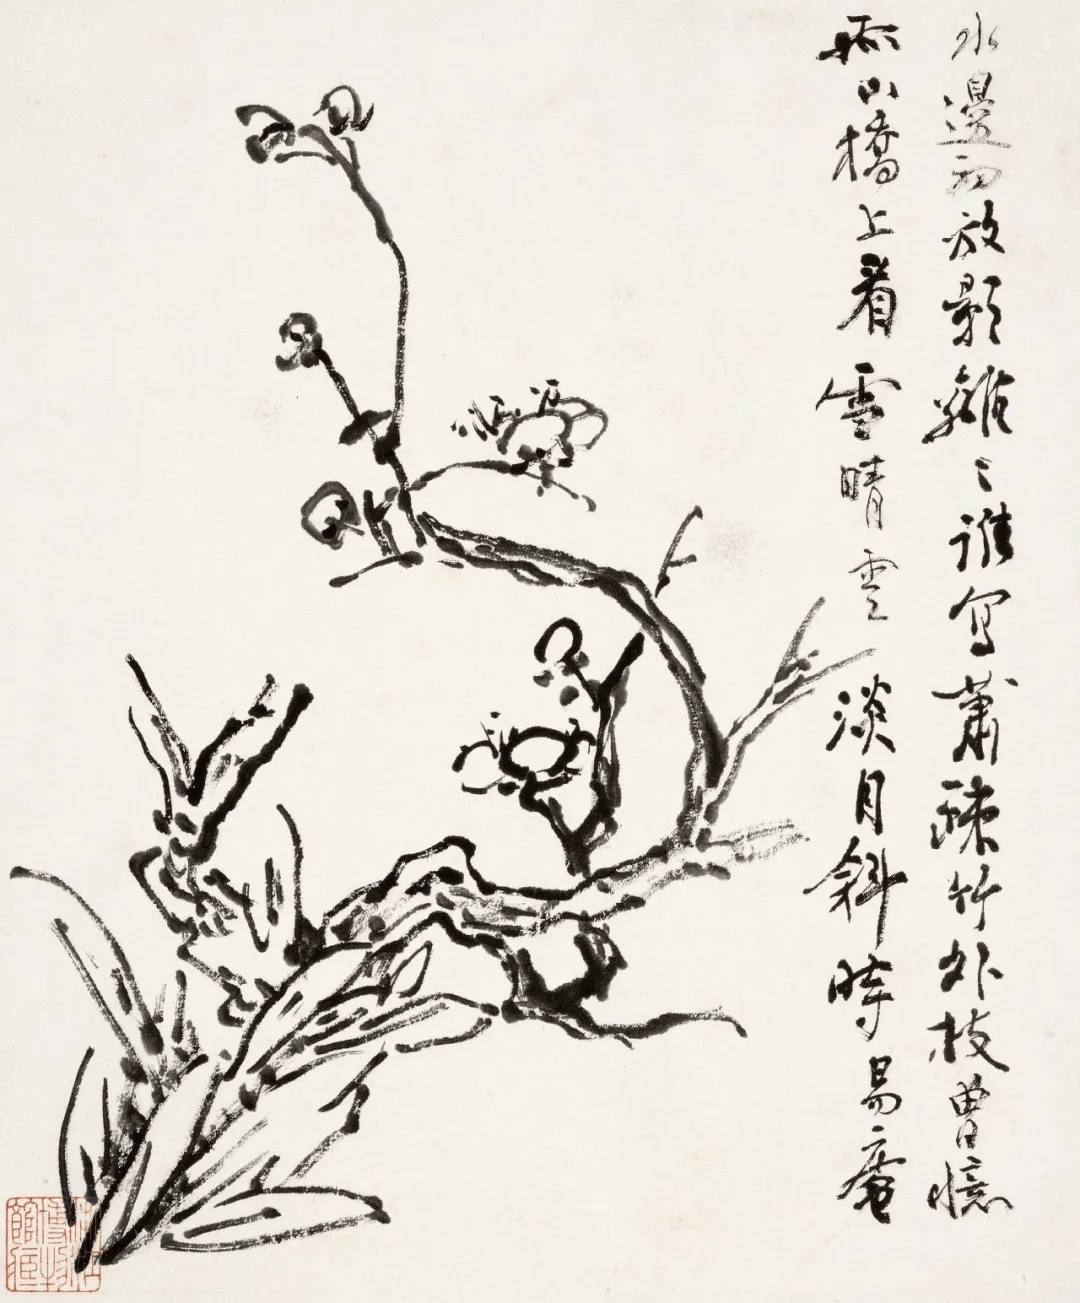 水邊初放影離〻誰寫蕭疎竹外枝曾憶
孤山橋上看雪晴雲淡月斜時易庵